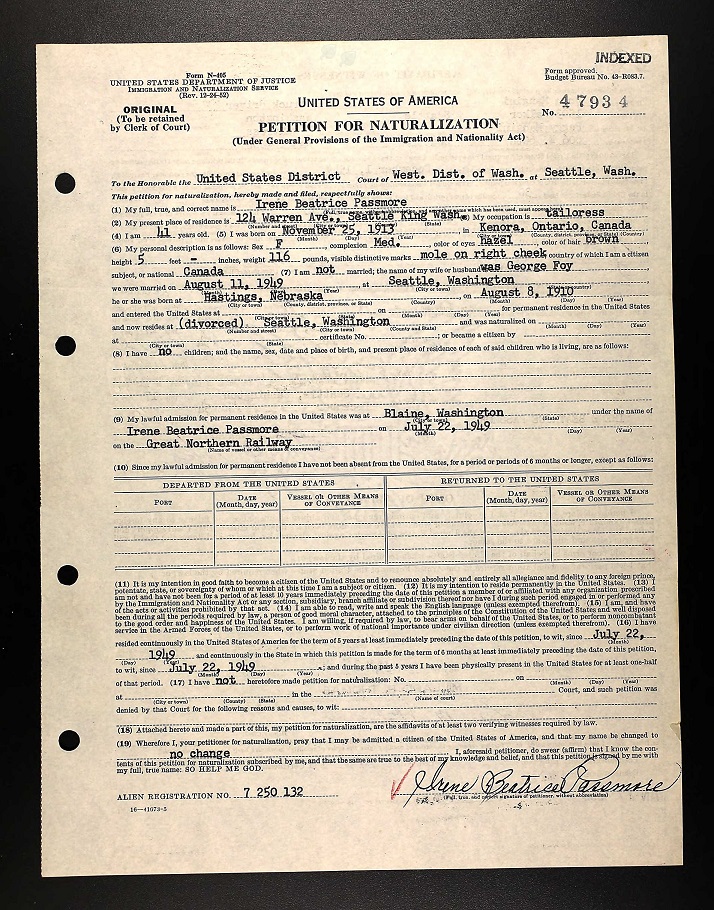 INDEXED
Form N-405
UNITED STATES DEPARTMENT OF JUSTICE
IMMIGRATION AND NATURALIZATION SERVICE
(Rev. 12-24-52)
Form approved.
Budget Bureau No. 43-R083.7.
ORIGINAL
(To be retained
by Clerk of Court)
UNITED STATES OF AMERICA
No. 47934
PETITION FOR NATURALIZATION
(Under General Provisions of the Immigration and Nationality Act)
To the Honorable the United States District Court of West. Dist. of Wash. at Seattle, Wash.
This petition for naturalization, hereby made and filed, respectfully shows:
(1) My full, true, and correct name is Irene Beatrice Passmore
(2) My present place of residence is 124 Warren Ave., Seattle King Wash. My occupation is tailoress
(Number and street) (State)
(4) I am 41 years old. (5) I was born on November 25, 1913 in Kenora, Ontario, Canada
(Month) (Day) (Year) (City or town) (County, district, province, or State) (Country)
(6) My personal description is as follows: Sex F, complexion Med. color of eyes hazel color of hair brown
height 5 feet - inches, weight 116 pounds, visible distinctive marks mole on right cheek country of which I am a citizen
subject, or national Canada (7) I am not married; the name of my wife or husband was George Foy
we were married on August 11, 1949 at Seattle, Washington
he or she was born at Hastings, Nebraska on August 8, 1910
(City or town) (County, district, province, or State) (Country) (Month) (Day) (Year)
and entered the United States at on for permanent residence in the United States
and now resides at (divorced) Seattle, Washington and was naturalized on
(Number and street) (City or town) (County and State) (Month) (Day) (Year)
at certificate No. ; or became a citizen by
(City or town) (State)
(8) I have no children; and the name, sex, date and place of birth, and present place of residence of each of said children who is living, are as follows:
(9) My lawful admission for permanent residence in the United States was at Blaine, Washington under the name of
(City or town) (State)
Irene Beatrice Passmore on July 22, 1949
(Month) (Day) (Year)
on the Great Northern Railway
(Name of vessel or other means of conveyance)
(10) Since my lawful admission for permanent residence I have not been absent from the United States, for a period or periods of 6 months or longer, except as follows:
DEPARTED FROM THE UNITED STATES RETURNED TO THE UNITED STATES
PORT DATE (Month, day, year) VESSEL OR OTHER MEANS OF CONVEYANCE PORT DATE (Month, day, year) VESSEL OR OTHER MEANS OF CONVEYANCE
(11) It is my intention in good faith to become a citizen of the United States and to renounce absolutely and entirely all allegiance and fidelity to any foreign prince,
potentate, state, or sovereignty of whom or which at this time I am a subject or citizen. (12) It is my intention to reside permanently in the United States. (13) I
am not and have not been for a period of at least 10 years immediately preceding the date of this petition a member of or affiliated with any organization proscribed
by the Immigration and Nationality Act or any section, subsidiary, branch affiliate or subdivision thereof nor have I during such period engaged in or performed any
of the acts or activities prohibited by that act. (14) I am able to read, write and speak the English language (unless exempted therefrom). (15) I am, and have
been during all the periods required by law, a person of good moral character, attached to the principles of the Constitution of the United States and well disposed
to the good order and happiness of the United States. I am willing, if required by law, to bear arms on behalf of the United States, or to perform noncombatant
service in the Armed Forces of the United States, or to perform work of national importance under civilian direction (unless exempted therefrom). (16) I have
resided continuously in the United States of America for the term of 5 years at least immediately preceding the date of this petition, to wit, since July 22,
1949 and continuously in the State in which this petition is made for the term of 6 months at least immediately preceding the date of this petition,
(Day) (Year) (Month)
to wit, since July 22, 1949; and during the past 5 years I have been physically present in the United States for at least one-half
(Month) (Day) (Year)
of that period. (17) I have not heretofore made petition for naturalization: No. on
(Month) (Day) (Year)
at in the Court, and such petition was
(City or town) (County) (State) (Name of court)
denied by that Court for the following reasons and causes, to wit:
(18) Attached hereto and made a part of this, my petition for naturalization, are the affidavits of at least two verifying witnesses required by law.
(19) Wherefore I, your petitioner for naturalization, pray that I may be admitted a citizen of the United States of America, and that my name be changed to
no change I, aforesaid petitioner, do swear (affirm) that I know the con-
tents of this petition for naturalization subscribed by me, and that the same are true to the best of my knowledge and belief, and that this petition is signed by me with
my full, true name: SO HELP ME GOD.
Irene Beatrice Passmore
(Full, true, and correct signature of petitioner, without abbreviation)
ALIEN REGISTRATION NO. 7 250 132
16—41673-5